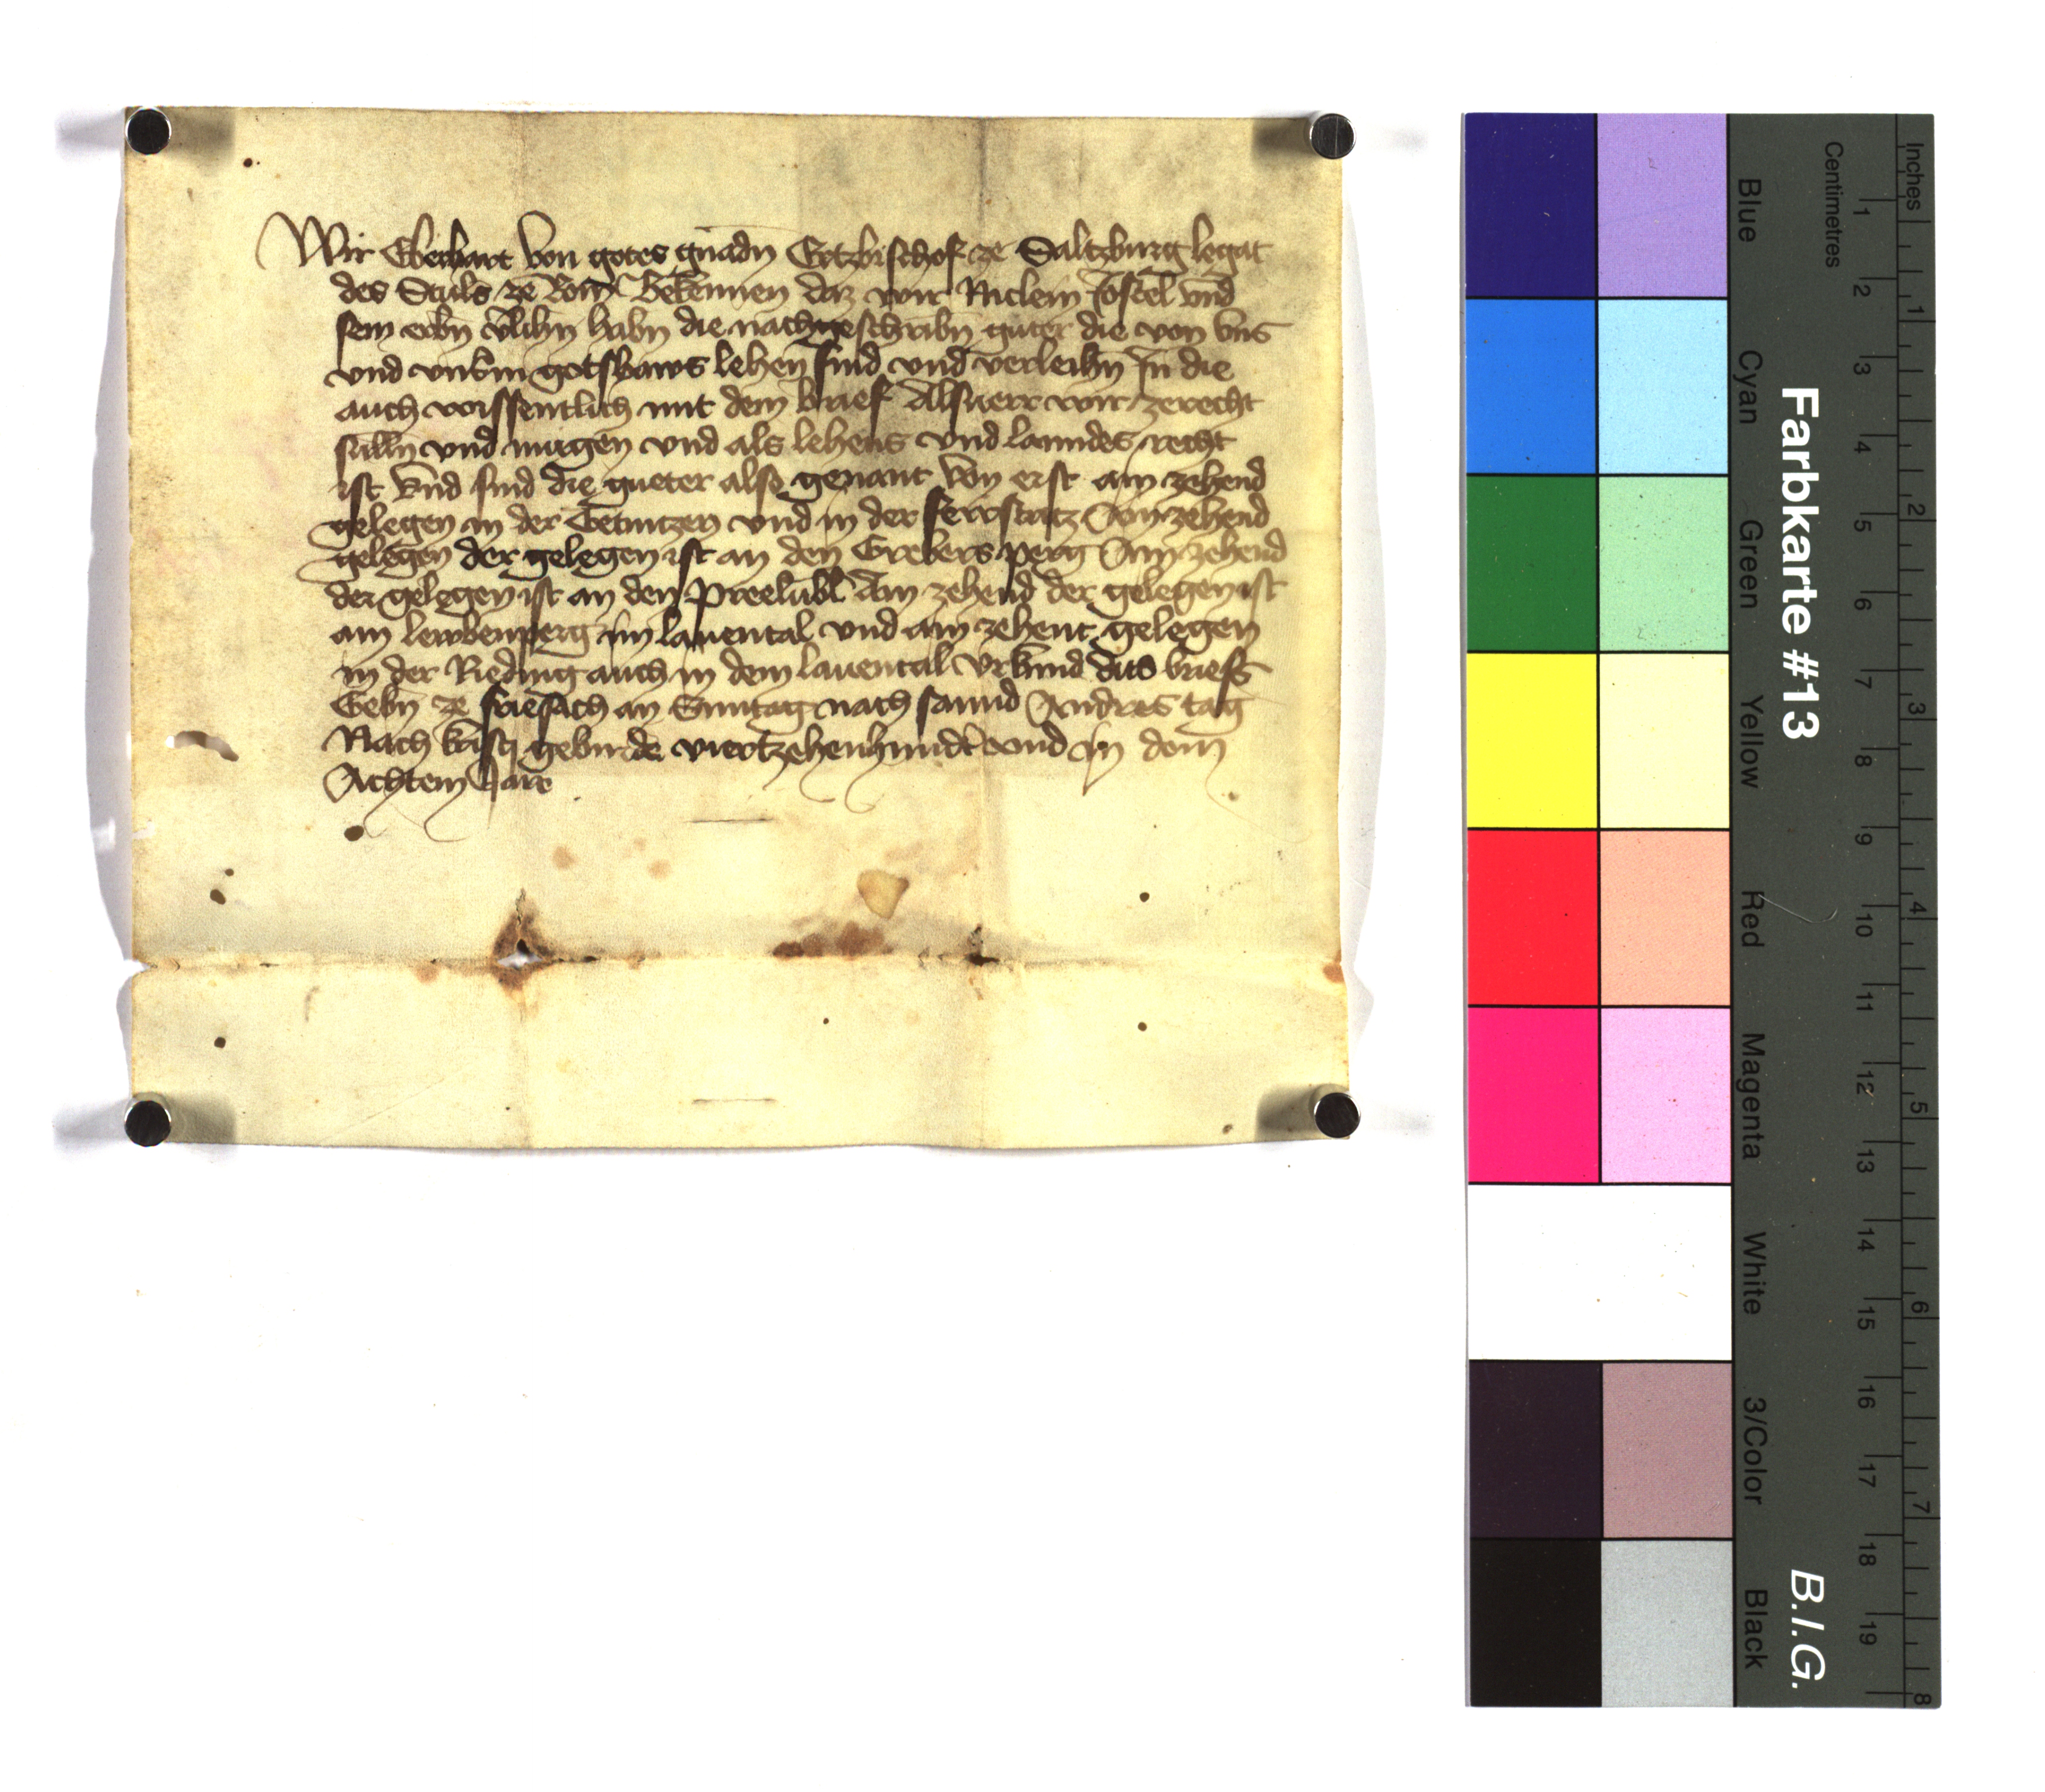 Wir Eberhart von gotes gnadn Ertzbischof ze Saltzburg legat
des Stuls ze Rom Bekennen daz wir Niclem Jostel vnd
sein erbn v̄lihn habn die nachgeschribn guter die von vns
vnd vnserm gotshaws lehen sind vnd verleihn In die
auch wissentlich mit dem brief Alsuerr wir zerecht
sulln vnd mugen vnd als lehens vnd lanndes recht
ist vnd sind die gueter also genant von erst ain zehend
gelegen in der vnd in der Ain zehend
gelegen der gelegen ist an den Grebers perg Ain zehend
der gelegen ist an den Preelubl Ain zehend der gelegen ist
am lewbenperg im lauental vnd ain zehent gelegen
in der Reding auch in dem lauental vrkund dits briefs
Gebn ze friesach an Sunntag nach sannd Andres tag
Nach kristi geburde viertzehenhundt vnd in dem
Achtem Jare
Farbkarte #13
B.I.G.
Centimetres
Inches
Blue
Cyan
Green
Yellow
Red
Magenta
White
3/Color
Black
1 2 3 4 5 6 7 8 9 10 11 12 13 14 15 16 17 18 19
1 2 3 4 5 6 7 8